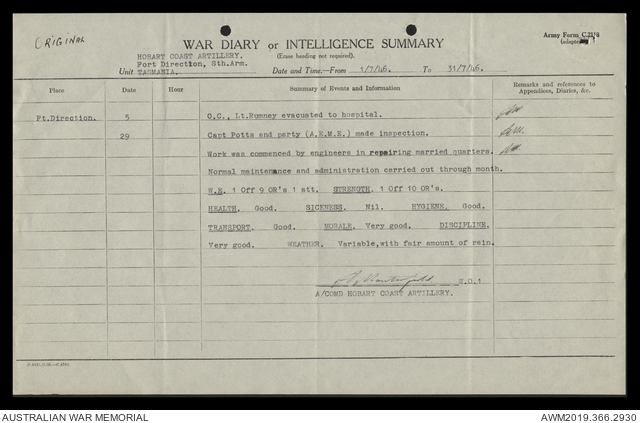 ORIGINAL
Army Form C.2118
(adapted)
WAR DIARY or INTELLIGENCE SUMMARY
(Erase heading not required).
HOBART COAST ARTILLERY.
Fort Direction, Sth.Arm.
Unit TASMANIA.
Date and Time.—From 1/7/46. To 31/7/46.
Place Date Hour Summary of Events and Information Remarks and references to Appendices, Diaries, &c.
Ft.Direction. 5 O.C., Lt.Rumney evacuated to hospital.
29 Capt Potts and party (A.E.M.E.) made inspection.
Work was commenced by engineers in repairing married quarters.
Normal maintenance and administration carried out through month.
W.E. 1 Off 9 OR's 1 att. STRENGTH. 1 Off 10 OR's.
HEALTH. Good. SICKNESS. Nil. HYGIENE. Good.
TRANSPORT. Good. MORALE. Very good. DISCIPLINE.
Very good. WEATHER. Variable,with fair amount of rain.
W.O.1
A/COMD HOBART COAST ARTILLERY.
AUSTRALIAN WAR MEMORIAL
AWM2019.366.2930